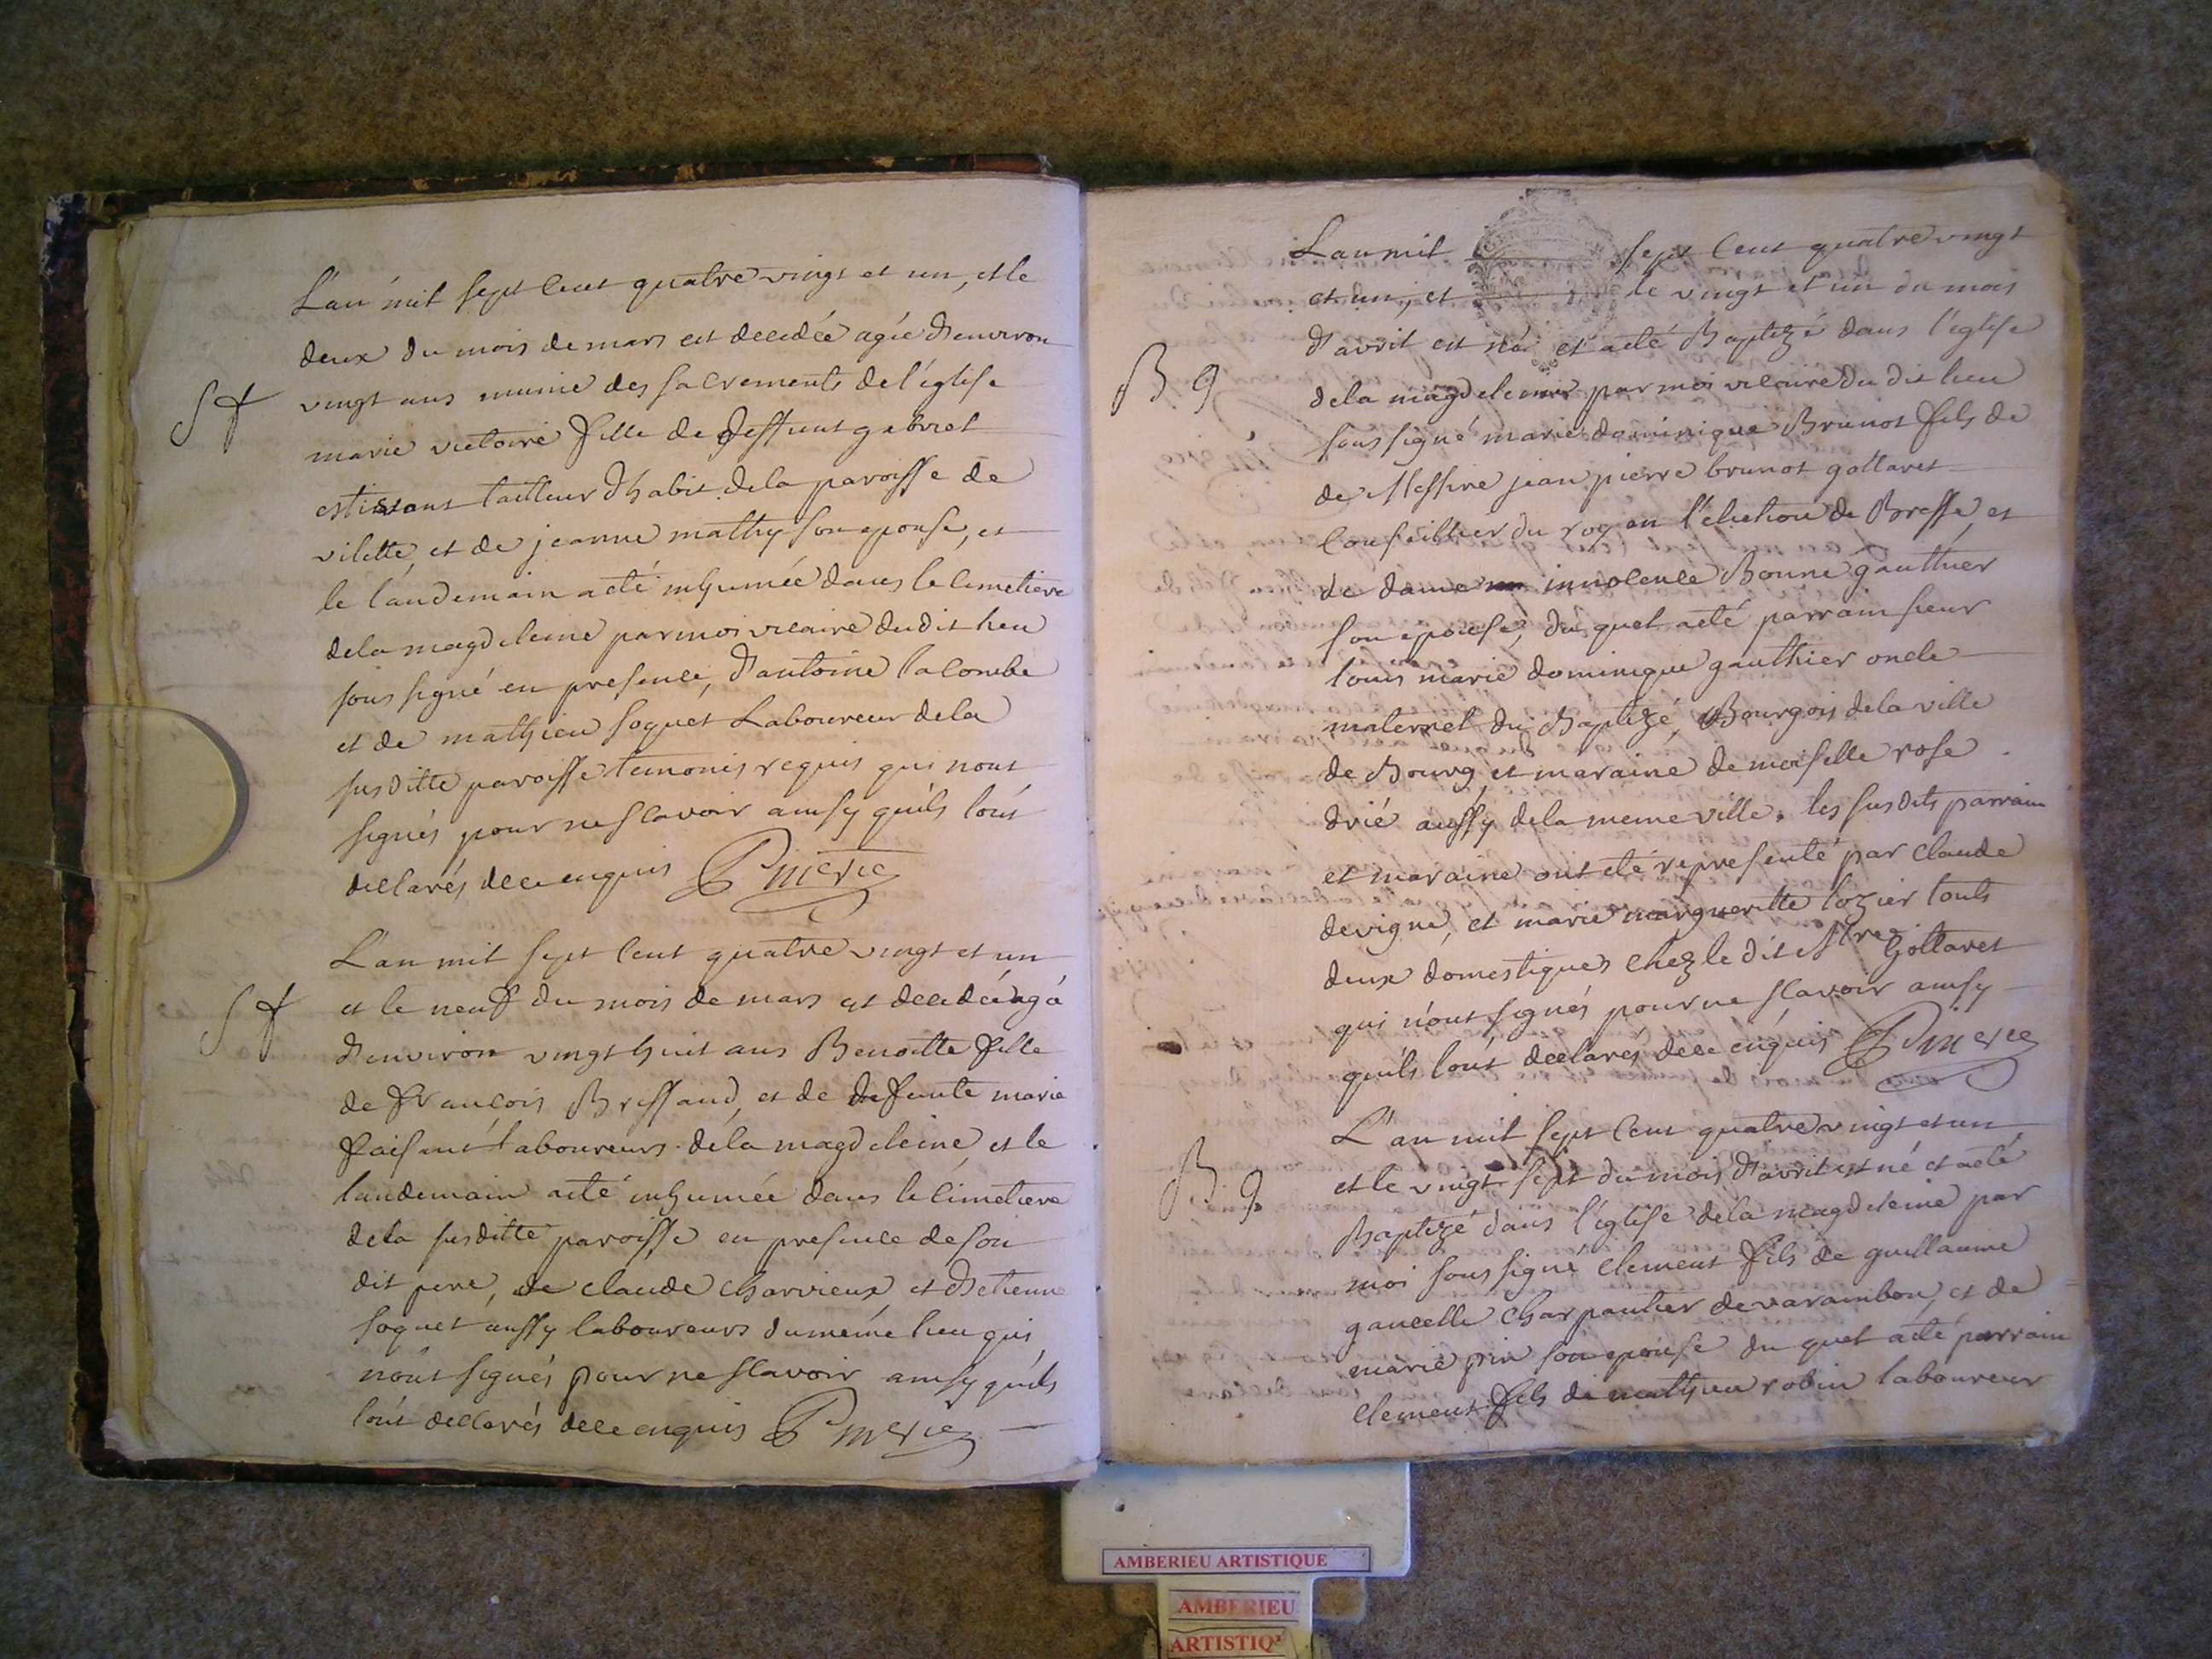 L'an mil sept cent quatre vingt et un, et le
deux du mois de mars est decedée agée d'environ
S f
vingt ans munie des sacrements de l'eglise
marie victoire fille de deffunt gabriel
tailleur d'habit de la paroisse de
vilette, et de jeanne mathy son epouse, et
le landemain a eté inhumée dans le cimetiere
de la magdeleine par moi vicaire du dit lieu
sous signé en presence, d'antoine lacombe
et de mathieu soquet Laboureur de la
susditte paroisse temoins requis qui n'ont
signés pour ne scavoir ainsy qu'ils l'ont
declarés de ce enquis P merie
L'an mil sept cent quatre vingt et un
S f
et le neuf du mois de mars est decedée agé
d'environ vingt huit ans Benoitte fille
de francois Bressand, et de defunte marie
laboureurs de la magdeleine, et le
landemain a eté inhumée dans le cimetiere
de la susditte paroisse en presence de son
dit pere, de claude charvieux, et d'etienne
soquet aussy laboureurs du meme lieu qui
n'ont signés pour ne scavoir ainsy qu'ils
l'ont declarés de ce enquis P merie
L'an mil sept cent quatre vingt
et un, et le vingt et un du mois
d'avril est né et a eté Baptizé dans l'eglise
B g
de la magdeleine par moi vicaire du dit lieu
sous signé marie dominique Brunot fils de
de Messire jean pierre brunot gollaret
Conseillier du roy en l'election de Bresse, et
de dame innocence Bonne gauthier
son epouse, du quel a eté parrain sieur
louis marie dominique gauthier oncle
maternel du Baptizé, Bourgois de la ville
de Bourg, et maraine demoiselle rose
drié aussy de la meme ville. les susdits parrain
et maraine ont eté representé par claude
devigne, et marie margueritte lozier touts
deux domestiques chez le dit Mre Gollaret
qui n'ont signés pour ne scavoir ainsy
qu'ils l'ont declarés de ce enquis P merie
L'an mil sept cent quatre vingt et un
B g
et le vingt sept du mois d'avril est né et a eté
Baptizé dans l'eglise de la magdeleine par
moi sous signé clement fils de guillaume
gancelle charpantier de varambon, et de
marie pin son epouse du quel a eté parrain
clement fils de mathieu robin laboureur
AMBERIEU ARTISTIQUE
AMBERIEU
ARTISTIQ